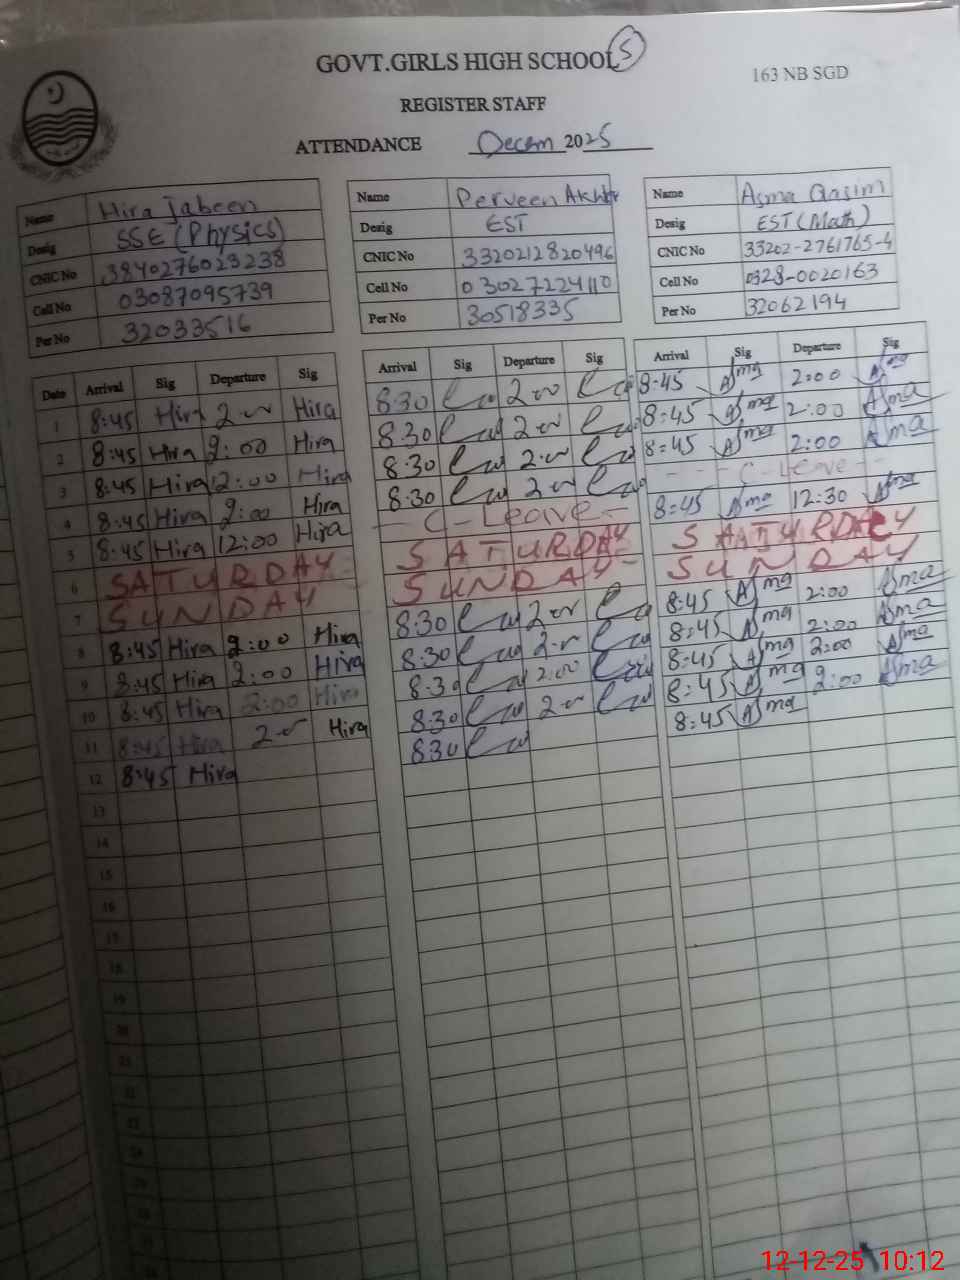 GOVT.GIRLS HIGH SCHOOL S
163 NB SGD
REGISTER STAFF
ATTENDANCE Decem 2025
Name Hira Jabeen
Desig SSE (Physics)
CNIC No 3840276023238
Cell No 03087095739
Per No 32033516
Name Perveen Akhtr
Desig EST
CNIC No 3320212820496
Cell No 03027224110
Per No 30518335
Name Asma Qasim
Desig EST (Math)
CNIC No 33202-2761765-4
Cell No 0328-0020163
Per No 32062194
Date Arrival Sig Departure Sig
1 8:45 Hira 2-00 Hira
2 8:45 Hira 2:00 Hira
3 8:45 Hira 2:00 Hira
4 8:45 Hira 2:00 Hira
5 8:45 Hira 12:00 Hira
6 SATURDAY
7 SUNDAY
8 8:45 Hira 2:00 Hira
9 8:45 Hira 2:00 Hira
10 8:45 Hira 2:00 Hira
11 8:45 Hira 2-00 Hira
12 8:45 Hira
13
14
15
16
17
18
19
20
21
22
23
24
Arrival Sig Departure Sig
8:30 2-00
8:30 2-00
8:30 2-00
8:30 2-00
C-Leave
SATURDAY
SUNDAY
8:30 2-00
8:30 2-00
8:30 2:00
8:30 2-00
8:30
Arrival Sig Departure Sig
8:45 Asma 2:00 Asma
8:45 Asma 2:00 Asma
8:45 Asma 2:00 Asma
C-Leave
8:45 Asma 12:30 Asma
SATURDAY
SUNDAY
8:45 Asma 2:00 Asma
8:45 Asma 2:00 Asma
8:45 Asma 2:00 Asma
8:45 Asma 2:00 Asma
8:45 Asma
12-12-25 10:12